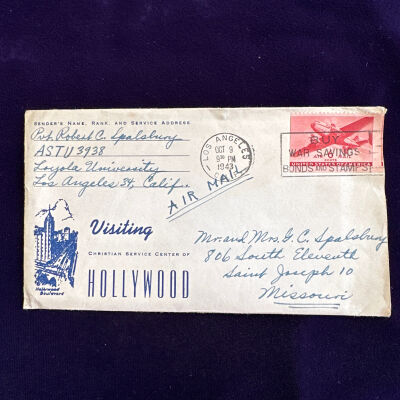 SENDER'S NAME, RANK, AND SERVICE ADDRESS
Pvt. Robert C. Spalsbury
ASTU 3938
Loyola University
Los Angeles 34, Calif.
LOS ANGELES
OCT 9
9 30 PM
1943
BUY
WAR SAVINGS
BONDS AND STAMPS
UNITED STATES OF AMERICA
AIR MAIL
Visiting
CHRISTIAN SERVICE CENTER OF
HOLLYWOOD
Hollywood
Boulevard
Mr. and Mrs. G. C. Spalsbury
806 South Eleventh
Saint Joseph 10
Missouri